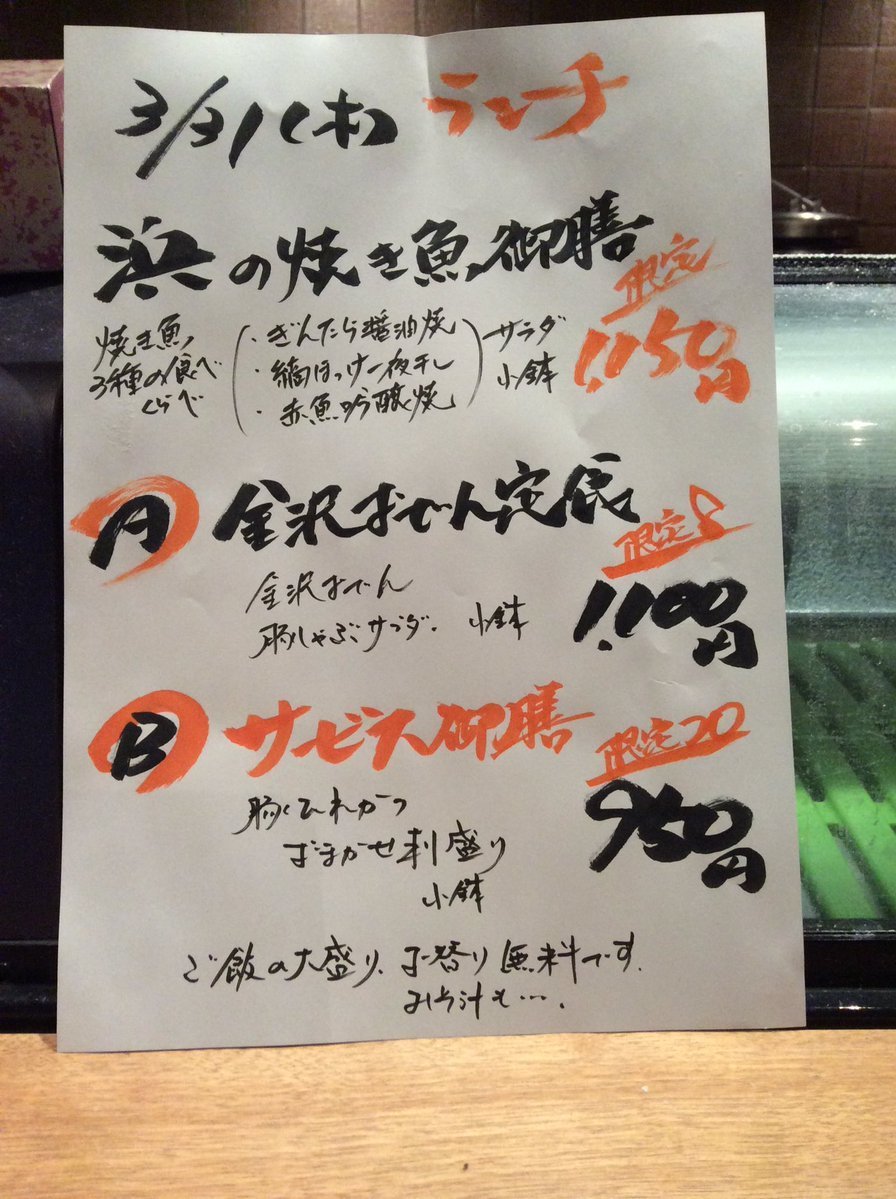 3/31(木) ランチ
浜の焼き魚御膳
限定
1,050円
焼き魚
3種の食べ
くらべ
・ぎんたら醤油焼
・縞ほっけ一夜干し
・赤魚吟醸焼
サラダ
小鉢
A 金沢おでん定食
限定8
1,100円
金沢おでん
豚しゃぶサラダ、小鉢
B サービス御膳
限定20
950円
豚ひれかつ
おまかせ刺盛り
小鉢
ご飯の大盛り、お替り無料です。
みそ汁も…。